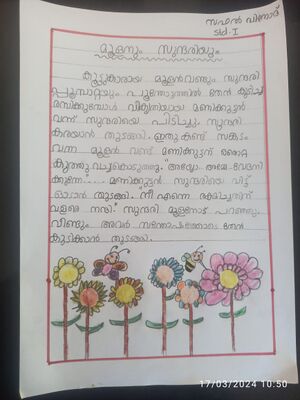 സഫൽ വിനോദ്
std - I
മൂളനും സുന്ദരിയും
കൂട്ടുകാരായ മൂളൻവണ്ടും സുന്ദരി
പൂമ്പാറ്റയും പൂന്തോട്ടത്തിൽ തേൻ കുടിച്ച്
രസിക്കുമ്പോൾ വികൃതിയായ മണിക്കുട്ടൻ
വന്ന് സുന്ദരിയെ പിടിച്ചു. സുന്ദരി
കരയാൻ തുടങ്ങി. ഇതു കണ്ട് സങ്കടം
വന്ന മൂളൻ വണ്ട് മണിക്കുട്ടന് ഒരൊറ്റ
കുത്തു വച്ചുകൊടുത്തു. "അയ്യോ അമ്മേ വേദനി
ക്കുന്നേ".... മണിക്കുട്ടൻ സുന്ദരിയെ വിട്ട്
ഓടാൻ തുടങ്ങി. നീ എന്നെ രക്ഷിച്ചതിന്
വളരെ നന്ദി." സുന്ദരി മൂളനോട് പറഞ്ഞു.
വീണ്ടും അവർ സന്തോഷത്തോടെ തേൻ
കുടിക്കാൻ തുടങ്ങി.
17/03/2024 10:50